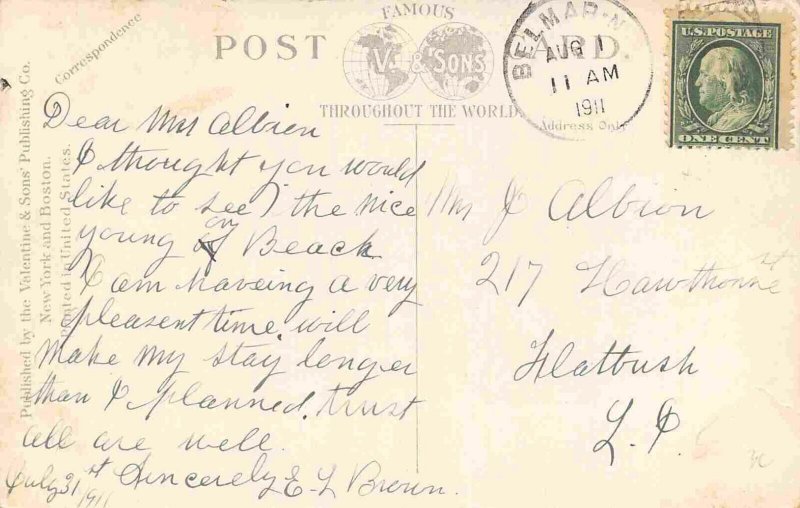 FAMOUS
POST CARD.
V. & SONS
THROUGHOUT THE WORLD
Correspondence
Address Only
Published by the Valentine & Sons' Publishing Co.
New York and Boston.
Printed in United States.
BELMAR. N.
AUG 1
11 AM
1911
U.S. POSTAGE
ONE CENT
Dear Mrs Albion
I thought you would
like to see the nice
young on Beach
I am haveing a very
pleasent time. will
make my stay longer
than I planned. trust
all are well.
Sincerely E. L Brown.
July 31st
1911
Mrs J Albion
217 Hawthorne st
Flatbush
L. I.